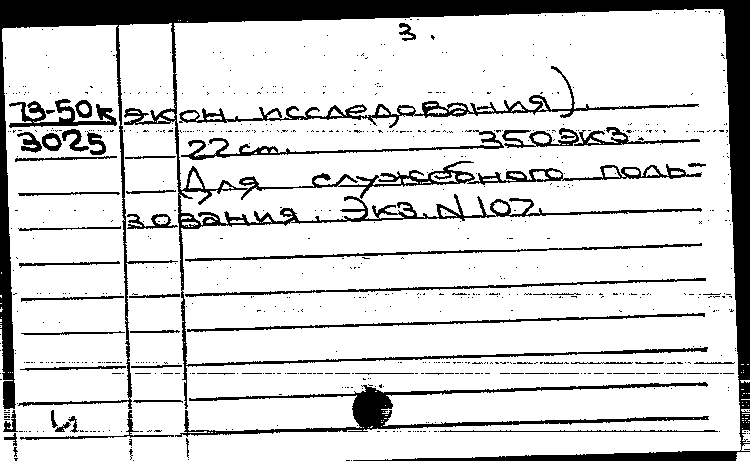 3.
73-50к экон. исследования).
3025 22 см. 350 экз.
Для служебного поль-
зования. Экз. N 107.
и